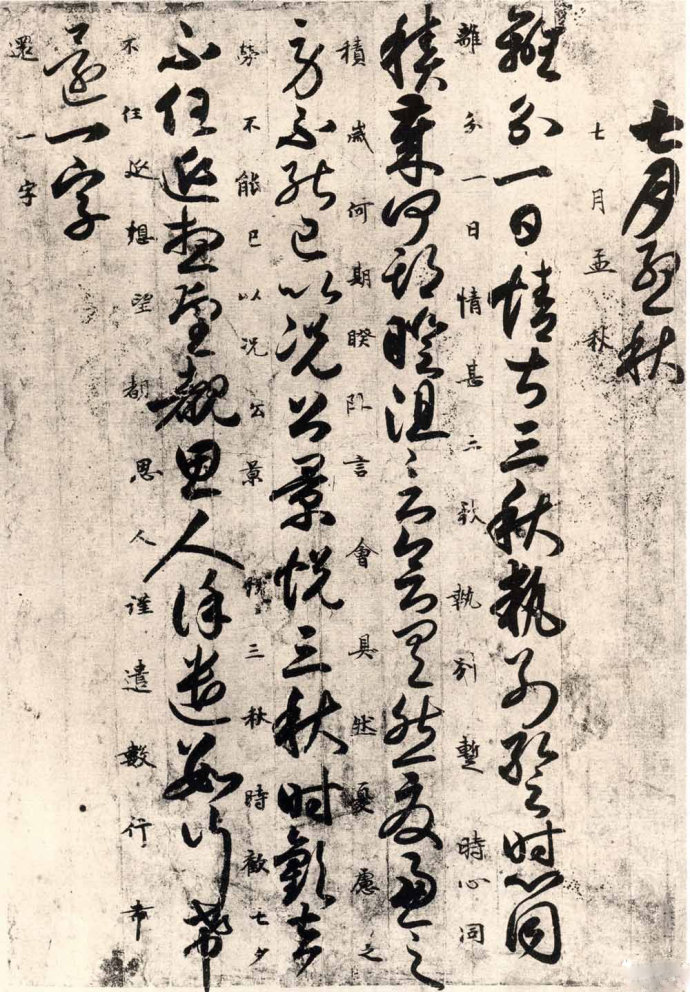 七月孟秋
七月孟秋
離分一日情甚三秋執別暫時心同
離分一日情甚三秋執別暫時心同
積歲何期暌阻言會具然憂慮之
積歲何期暌阻言會具然憂慮之
勞不能已以况公景悦三秋時歡七夕
勞不能已以况公景悦三秋時歡七夕
不任延想望覩思人謹遣數行希
不任延想望都思人謹遣數行希
還一字
還一字